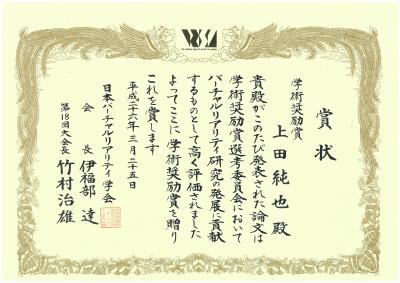 VRSJ
賞状
学術奨励賞
上田純也殿
貴殿がこのたび発表された論文は
学術奨励賞選考委員会において
バーチャルリアリティ研究の発展に貢献
するものとして高く評価されました
よってここに学術奨励賞を贈り
これを賞します
平成二十六年三月二十五日
日本バーチャルリアリティ学会
会長 伊福部達
第18回大会長 竹村治雄